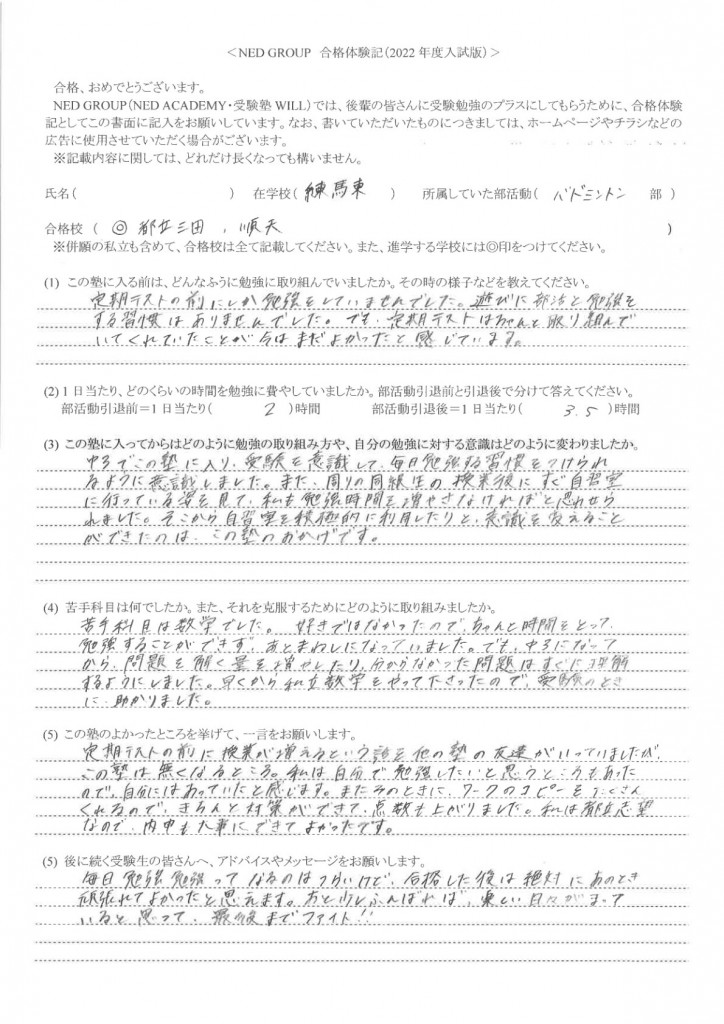 ＜NED GROUP 合格体験記（2022 年度入試版）＞
合格、おめでとうございます。
NED GROUP（NED ACADEMY・受験塾 WILL）では、後輩の皆さんに受験勉強のプラスにしてもらうために、合格体験
記としてこの書面に記入をお願いしています。なお、書いていただいたものにつきましては、ホームページやチラシなどの
広告に使用させていただく場合がございます。
※記載内容に関しては、どれだけ長くなっても構いません。
氏名（　　　） 在学校（ 練馬東 ） 所属していた部活動（ バドミントン 部 ）
合格校 （ ◎ 都立三田 , 順天 ）
※併願の私立も含めて、合格校は全て記載してください。また、進学する学校には◎印をつけてください。
(1) この塾に入る前は、どんなふうに勉強に取り組んでいましたか。その時の様子などを教えてください。
定期テストの前にしか勉強をしていませんでした。遊びに部活と勉強を
する習慣はありませんでした。でも、定期テストはちゃんと取り組んで
いてくれていたことが今はまだよかったと感じています。
(2) 1 日当たり、どのくらいの時間を勉強に費やしていましたか。部活動引退前と引退後で分けて答えてください。
部活動引退前＝1 日当たり（ 2 ）時間 部活動引退後＝1 日当たり（ 3.5 ）時間
(3) この塾に入ってからはどのように勉強の取り組み方や、自分の勉強に対する意識はどのように変わりましたか。
中3でこの塾に入り、受験を意識して、毎日勉強する習慣をつけられ
るように意識しました。また、周りの同級生の授業後にすぐ自習室
に行っている姿を見て、私も勉強時間を増やさなければと思わせら
れました。そこから自習室を積極的に利用したりと、意識を変えること
ができたのは、この塾のおかげです。
(4) 苦手科目は何でしたか。また、それを克服するためにどのように取り組みましたか。
苦手科目は数学でした。好きではなかったので、ちゃんと時間をとって
勉強することができず、あとまわしになっていました。でも、中3になって
から、問題を解く量を増やしたり、分からなかった問題はすぐに理解
するようにしました。早くから私立数学をやって下さったので、受験のとき
に、助かりました。
(5) この塾のよかったところを挙げて、一言をお願いします。
定期テストの前に授業が増えるという話を他の塾の友達がいっていましたが、
この塾は無くなるところ。私は自分で勉強したいと思うところもあった
ので、自分にはあっていたと感じます。またそのときに、ワークのコピーをたくさん
くれるので、きちんと対策ができて、点数も上がりました。私は都立志望
なので、内申も大事にできてよかったです。
(5) 後に続く受験生の皆さんへ、アドバイスやメッセージをお願いします。
毎日勉強勉強ってなるのはつらいけど、合格した後は絶対にあのとき
頑張れてよかったと思えます。あと少しふんばれば、楽しい日々がまって
いると思って、最後までファイト!!